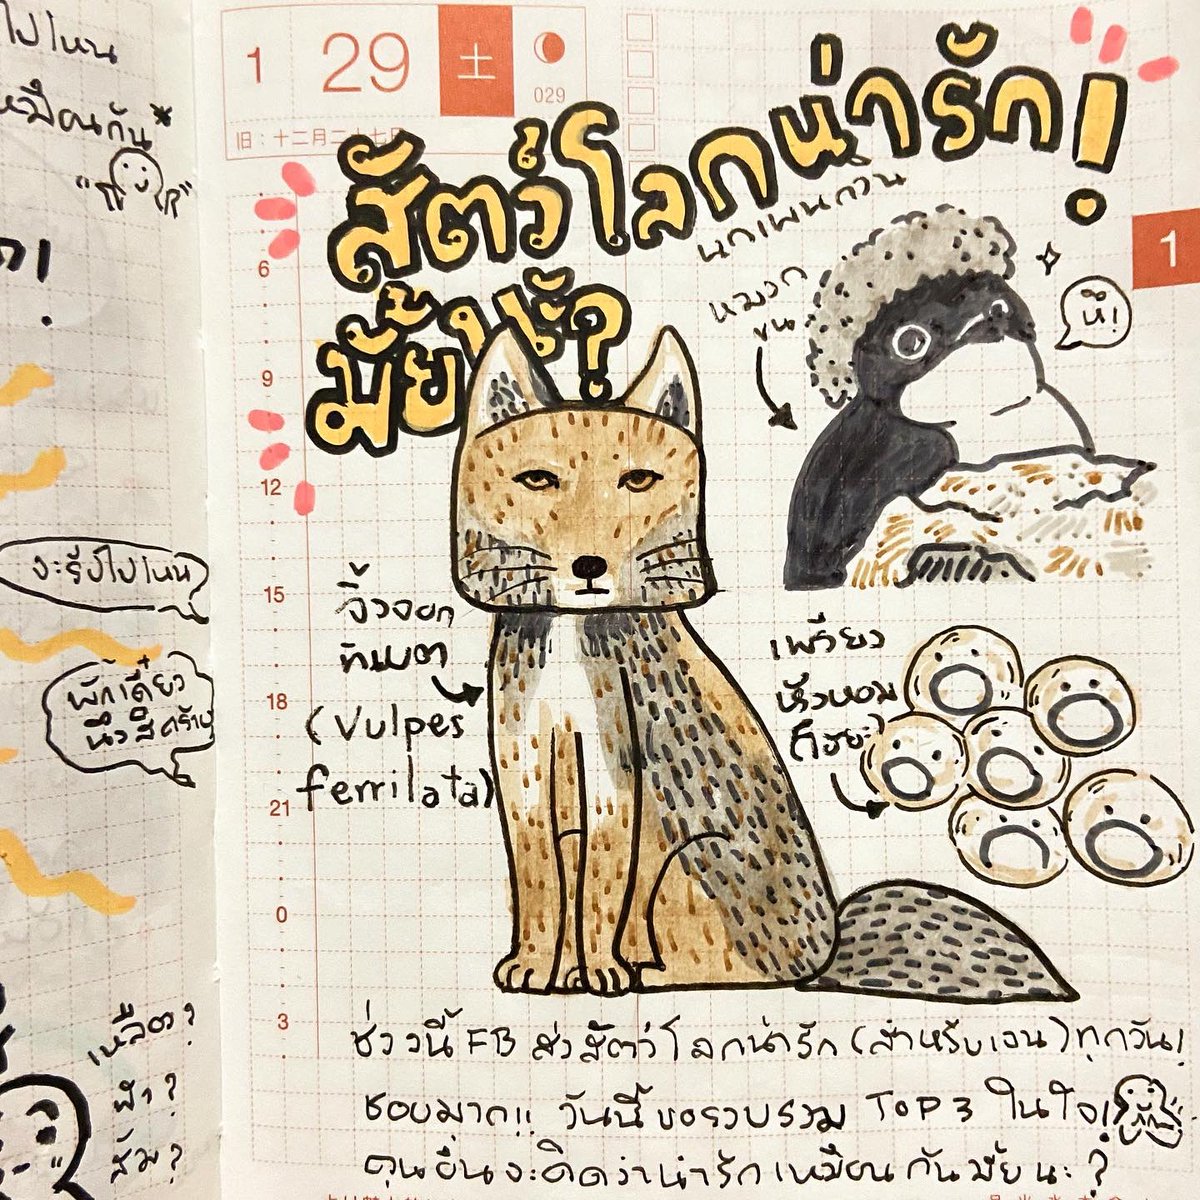 ไปไหน
เหมือนกัน*
1 29 土
029
旧：十二月二十七日
สัตว์โลกน่ารัก!
มั้ยนะ?
1
นกเพนกวิน
หมวก
ขน
หึ!
6
9
12
15
18
21
0
3
จะรีบไปไหน
พักเดี๋ยว
จิ้งจอก
ทิเบต
(Vulpes
ferrilata)
เพรียง
หัวหอม
เหลือง?
ฟ้า?
ส้ม?
ช่วงนี้ FB ส่งสัตว์โลกน่ารัก (สำหรับเจน) ทุกวัน!
ชอบมาก!! วันนี้ขอรวบรวม TOP 3 ในใจ!
คุณอื่นจะคิดว่าน่ารักเหมือนกันมั้ยนะ?